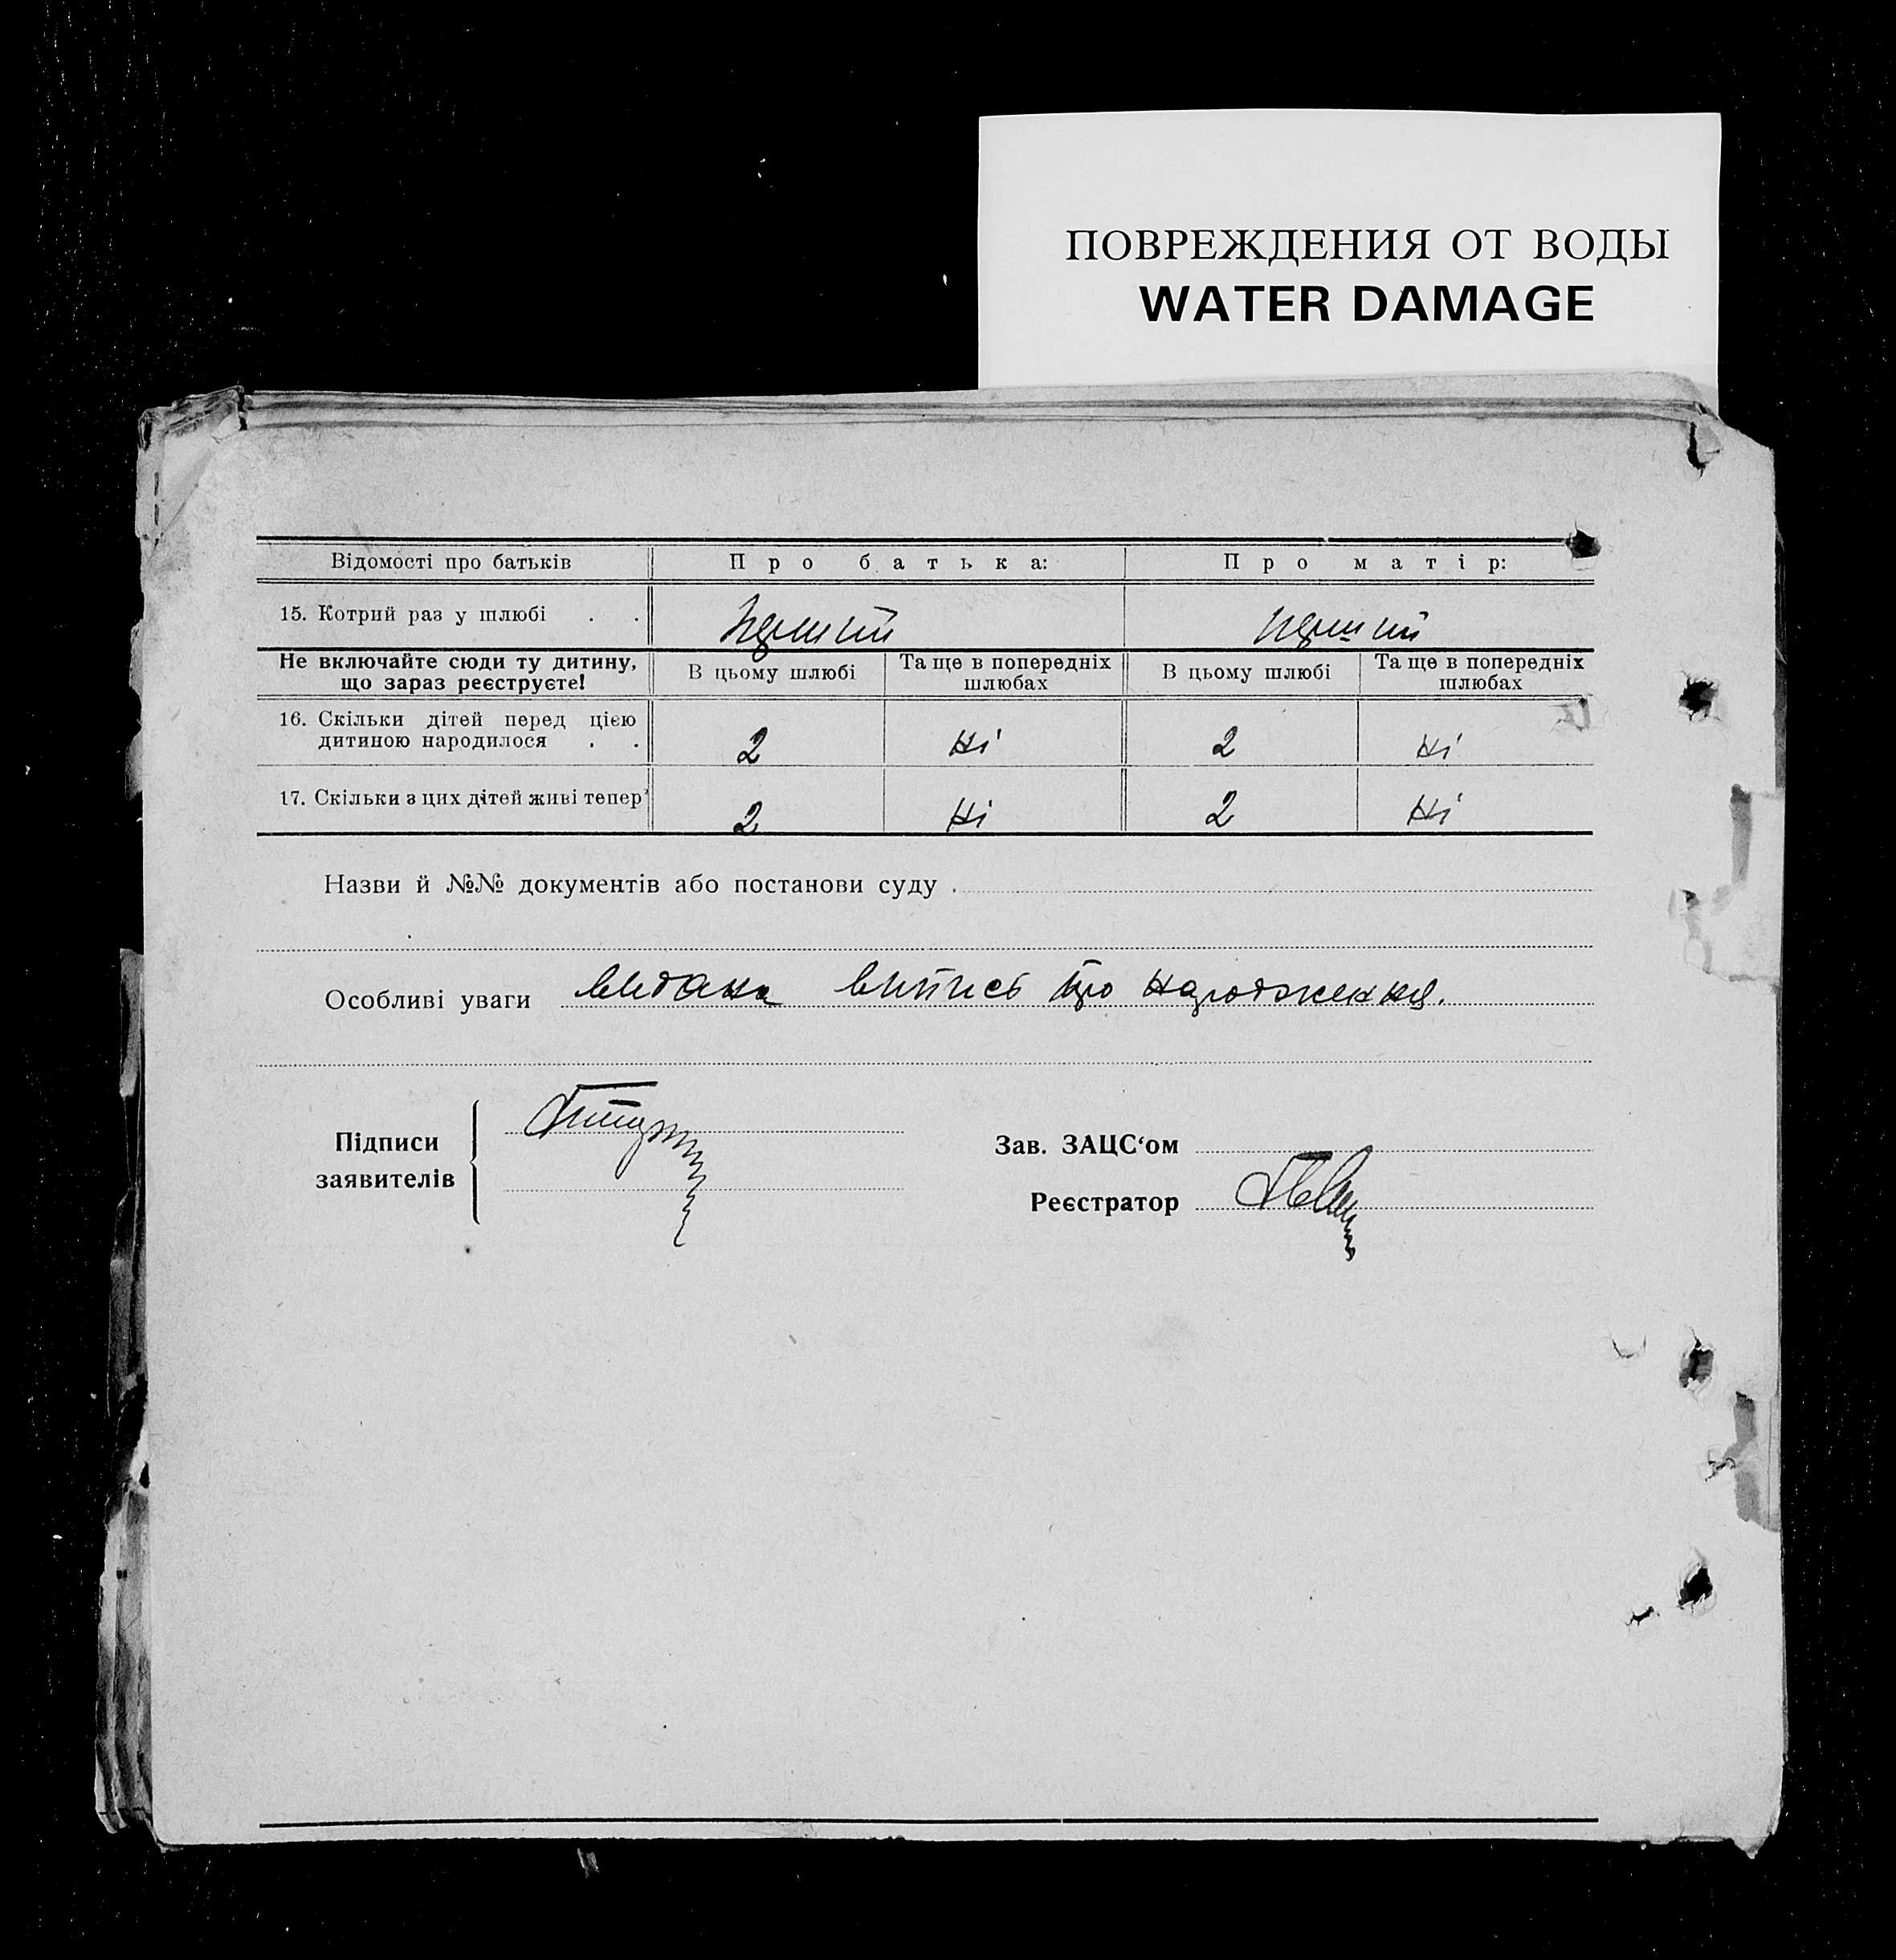 ПОВРЕЖДЕНИЯ ОТ ВОДЫ
WATER DAMAGE
Відомості про батьків Про батька: Про матір:
15. Котрий раз у шлюбі . . перший перший
Не включайте сюди ту дитину, що зараз реєструєте! В цьому шлюбі Та ще в попередніх шлюбах В цьому шлюбі Та ще в попередніх шлюбах
16. Скільки дітей перед цією дитиною народилося . . 2 ні 2 ні
17. Скільки з цих дітей живі тепер 2 ні 2 ні
Назви й №№ документів або постанови суду .
Особливі уваги видана випись про народження.
Підписи заявителів
Зав. ЗАЦС‘ом
Реєстратор